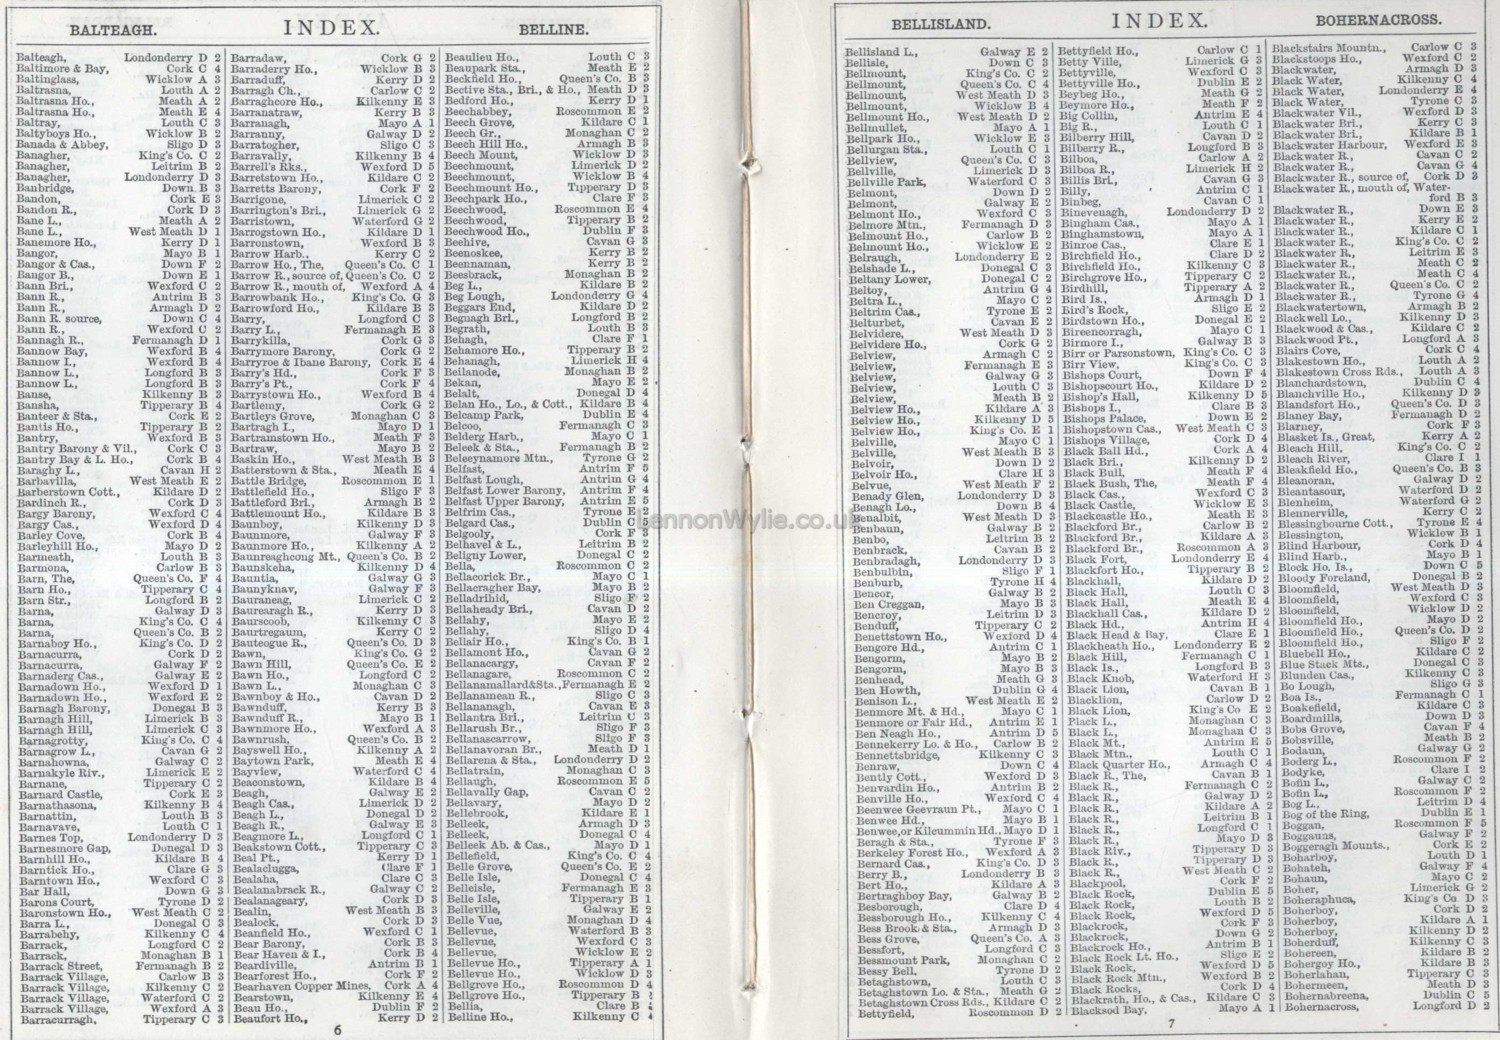 BALTEAGH. INDEX. BELLINE.
Balteagh, Londonderry D 2
Baltimore & Bay, Cork C 4
Baltinglass, Wicklow A 3
Baltrasna, Louth A 2
Baltrasna Ho., Meath A 2
Baltrasna Ho., Meath E 4
Baltray, Louth C 3
Baltyboys Ho., Wicklow B 2
Banada & Abbey, Sligo D 3
Banagher, King's Co. C 2
Banagher, Leitrim B 2
Banagher, Londonderry D 3
Banbridge, Down B 3
Bandon, Cork E 3
Bandon R., Cork D 3
Bane L., Meath A 2
Bane L., West Meath D 1
Banemore Ho., Kerry D 1
Bangor, Mayo B 1
Bangor & Cas., Down F 2
Bangor B., Down E 1
Bann Bri., Wexford C 2
Bann R., Antrim B 3
Bann R., Armagh D 2
Bann R. source, Down C 4
Bann R., Wexford C 2
Bannagh R., Fermanagh D 1
Bannow Bay, Wexford B 4
Bannow I., Wexford B 4
Bannow L., Longford B 3
Bannow L., Longford B 3
Banse, Kilkenny B 3
Bansha, Tipperary B 4
Banteer & Sta., Cork E 2
Bantis Ho., Tipperary B 2
Bantry, Wexford B 3
Bantry Barony & Vil., Cork C 3
Bantry Bay & L. Ho., Cork B 4
Baraghy L., Cavan H 2
Barbavilla, West Meath E 2
Barberstown Cott., Kildare D 2
Bardinch R., Cork D 3
Bargy Barony, Wexford C 4
Bargy Cas., Wexford D 4
Barley Cove, Cork B 4
Barleyhill Ho., Mayo D 2
Barmeath, Louth B 3
Barmona, Carlow B 3
Barn, The, Queen's Co. F 4
Barn Ho., Tipperary C 4
Barn Str., Longford B 2
Barna, Galway D 3
Barna, King's Co. C 4
Barna, Queen's Co. B 2
Barnaboy Ho., King's Co. D 2
Barnacurra, Cork D 2
Barnacurra, Galway F 2
Barnaderg Cas., Galway E 2
Barnadown Ho., Wexford D 1
Barnadown Ho., Wexford E 2
Barnagh Barony, Donegal B 3
Barnagh Hill, Limerick B 3
Barnagh Hill, Limerick C 3
Barnagrotty, King's Co. C 4
Barnagrow L., Cavan G 2
Barnahowna, Galway C 2
Barnakyle Riv., Limerick E 2
Barnane, Tipperary C 2
Barnard Castle, Cork E 3
Barnathasona, Kilkenny B 4
Barnattin, Louth B 3
Barnavave, Louth C 1
Barnes Top, Londonderry D 3
Barnesmore Gap, Donegal D 3
Barnhill Ho., Kildare B 4
Barntick Ho., Clare G 3
Barntown Ho., Wexford C 3
Bar Hall, Down G 3
Barons Court, Tyrone D 2
Baronstown Ho., West Meath C 2
Barra L., Donegal C 3
Barrabehy, Kilkenny C 4
Barrack, Longford C 2
Barrack, Monaghan B 1
Barrack Street, Fermanagh B 2
Barrack Village, Carlow B 3
Barrack Village, Kilkenny C 2
Barrack Village, Waterford C 2
Barrack Village, Wexford A 3
Barracurragh, Tipperary C 3
Barradaw, Cork G 2
Barraderry Ho., Wicklow B 3
Barraduff, Kerry D 2
Barragh Ch., Carlow C 2
Barraghcore Ho., Kilkenny E 3
Barranatraw, Kerry B 3
Barranagh, Mayo A 1
Barranny, Galway D 2
Barratogher, Sligo C 3
Barravally, Kilkenny B 4
Barrell's Rks., Wexford D 5
Barretstown Ho., Kildare C 2
Barretts Barony, Cork F 2
Barrigone, Limerick C 2
Barrington's Bri., Limerick G 2
Barristown, Waterford G 2
Barrogstown Ho., Kildare D 1
Barronstown, Wexford B 3
Barrow Harb., Kerry C 2
Barrow Ho., The, Queen's Co. C 1
Barrow R., source of, Queen's Co. C 2
Barrow R., mouth of, Wexford A 4
Barrowbank Ho., King's Co. G 3
Barrowford Ho., Kildare B 3
Barry, Longford C 3
Barry L., Fermanagh E 3
Barrykilla, Cork G 3
Barrymore Barony, Cork G 2
Barryroe & Ibane Barony, Cork E 4
Barry's Hd., Cork F 3
Barry's Pt., Cork F 4
Barrystown Ho., Wexford B 4
Bartlemy, Cork G 2
Bartleys Grove, Monaghan C 3
Bartragh I., Mayo D 1
Bartramstown Ho., Meath F 3
Bartraw, Mayo B 2
Baskin Ho., West Meath B 3
Batterstown & Sta., Meath E 4
Battle Bridge, Roscommon E 1
Battlefield Ho., Sligo F 3
Battleford Bri., Armagh B 2
Battlemount Ho., Kildare B 3
Baunboy, Kilkenny D 3
Baunmore, Galway F 3
Baunmore Ho., Kilkenny A 2
Baunreaghcong Mt., Queen's Co. B 2
Baunskeha, Kilkenny D 4
Bauntia, Galway G 3
Baunyknav, Galway F 3
Bauraneag, Limerick C 2
Baurearagh R., Kerry D 3
Baurscoob, Kilkenny C 3
Baurtregaum, Kerry C 2
Bauteogue R., Queen's Co. D 3
Bawn, King's Co. G 2
Bawn Hill, Queen's Co. E 2
Bawn Ho., Longford C 2
Bawn L., Monaghan C 3
Bawnboy & Ho., Cavan D 2
Bawnduff, Kerry B 3
Bawnduff R., Mayo B 1
Bawnmore Ho., Wexford A 3
Bawnrush, Queen's Co. B 2
Bayswell Ho., Kilkenny A 2
Baytown Park, Meath E 4
Bayview, Waterford C 4
Beaconstown, Kildare B 4
Beagh, Galway E 2
Beagh Cas., Limerick D 2
Beagh L., Donegal D 2
Beagh R., Galway E 3
Beagmore L., Longford C 1
Beakstown Cott., Tipperary C 3
Beal Pt., Kerry D 1
Bealaclugga, Clare F 1
Bealaha, Clare C 3
Bealanabrack R., Galway C 2
Bealanageary, Cork D 3
Bealin, West Meath B 3
Bealock, Cork D 3
Beanfield Ho., Wexford C 1
Bear Barony, Cork B 3
Bear Haven & I., Cork B 4
Beardiville, Antrim B 1
Bearforest Ho., Cork F 2
Bearhaven Copper Mines, Cork A 4
Bearstown, Kilkenny E 4
Beau Ho., Dublin F 2
Beaufort Ho., Kerry D 2
Beaulieu Ho., Louth C 3
Beaupark Sta., Meath E 2
Beckfield Ho., Queen's Co. B 3
Bective Sta., Bri., & Ho., Meath D 3
Bedford Ho., Kerry D 1
Beechabbey, Roscommon E 2
Beech Grove, Kildare C 1
Beech Gr., Monaghan C 2
Beech Hill Ho., Armagh B 3
Beech Mount, Wicklow D 3
Beechmount, Limerick D 2
Beechmount, Wicklow B 4
Beechmount Ho., Tipperary D 3
Beechpark Ho., Clare F 3
Beechwood, Roscommon E 4
Beechwood, Tipperary B 2
Beechwood Ho., Dublin F 3
Beehive, Cavan G 3
Beenoskee, Kerry B 2
Beennaman, Kerry B 2
Beesbrack, Monaghan B 2
Beg L., Kildare B 2
Beg Lough, Londonderry G 4
Beggars End, Kildare D 2
Begnagh Bri., Longford B 2
Begrath, Louth B 3
Behagh, Clare F 1
Behamore Ho., Tipperary B 2
Behanagh, Limerick H 4
Beilanode, Monaghan B 2
Bekan, Mayo E 2
Belalt, Donegal D 4
Belan Ho., Lo., & Cott., Kildare B 4
Belcamp Park, Dublin E 4
Belcoo, Fermanagh C 3
Belderg Harb., Mayo C 1
Beleek & Sta., Fermanagh B 2
Beleeynamore Mtn., Tyrone G 2
Belfast, Antrim F 5
Belfast Lough, Antrim G 4
Belfast Lower Barony, Antrim F 4
Belfast Upper Barony, Antrim E 5
Belfrim Cas., Tyrone E 2
Belgard Cas., Dublin C 5
Belgooly, Cork F 3
Belhavel & L., Leitrim B 2
Beligny Lower, Donegal C 2
Bella, Roscommon C 2
Bellacorick Br., Mayo C 1
Bellacragher Bay, Mayo B 2
Belladrihid, Sligo F 2
Bellaheady Bri., Cavan D 2
Bellahy, Mayo E 2
Bellahy, Sligo D 4
Bellair Ho., King's Co. B 1
Bellamont Ho., Cavan G 2
Bellanacargy, Cavan F 2
Bellanagare, Roscommon C 2
Bellanamallard & Sta., Fermanagh E 2
Bellanamean R., Sligo C 3
Bellananagh, Cavan E 3
Bellantra Bri., Leitrim C 3
Bellarush Br., Sligo F 3
Bellanascarrow, Sligo F 3
Bellanavoran Br., Meath D 1
Bellarena & Sta., Londonderry D 2
Bellatrain, Monaghan C 3
Bellaugh, Roscommon E 5
Bellavally Gap, Cavan C 2
Bellavary, Mayo D 2
Bellebrook, Kildare E 1
Belleek, Armagh D 3
Belleek, Donegal C 4
Belleek Ab. & Cas., Mayo D 1
Bellefield, King's Co. C 4
Belle Grove, Queen's Co. E 2
Belle Isle, Donegal C 4
Belleisle, Fermanagh E 3
Belle Isle, Tipperary B 1
Belleville, Galway E 2
Belle Vue, Monaghan D 4
Bellevue, Waterford B 3
Bellevue, Wexford C 3
Bellevue, Wicklow E 2
Bellevue Ho., Tipperary A 1
Bellevue Ho., Wicklow D 3
Bellgrove Ho., Roscommon D 4
Bellgrove Ho., Tipperary B
Bellia, Clare B
Belline Ho., Kilkenny C
6
BELLISLAND. INDEX. BOHERNACROSS.
Bellisland L., Galway E 2
Bellisle, Down C 3
Bellmount, King's Co. C 2
Bellmount, Queen's Co. C 4
Bellmount, West Meath D 3
Bellmount, Wicklow B 4
Bellmount Ho., West Meath D 2
Bellmullet, Mayo A 1
Bellpark Ho., Wicklow E 3
Bellurgan Sta., Louth C 1
Bellview, Queen's Co. C 3
Bellville, Limerick D 3
Bellville Park, Waterford C 3
Belmont, Down D 2
Belmont, Galway E 2
Belmont Ho., Wexford C 3
Belmore Mtn., Fermanagh D 3
Belmount Ho., Carlow B 2
Belmount Ho., Wicklow E 2
Belraugh, Londonderry E 2
Belshade L., Donegal C 3
Beltany Lower, Donegal C 2
Beltoy, Antrim G 4
Beltra L., Mayo C 2
Beltrim Cas., Tyrone E 2
Belturbet, Cavan E 2
Belvidere, West Meath D 3
Belvidere Ho., Cork G 2
Belview, Armagh C 2
Belview, Fermanagh E 3
Belview, Galway G 3
Belview, Louth C 3
Belview, Meath B 2
Belview Ho., Kildare A 3
Belview Ho., Kilkenny D 5
Belview Ho., King's Co. E 1
Belville, Mayo C 1
Belville, West Meath B 3
Belvoir, Down D 2
Belvoir Ho., Clare H 3
Belvue, West Meath F 2
Benady Glen, Londonderry D 3
Benagh Lo., Down B 4
Benalbit, West Meath D 3
Benbaun, Galway B 2
Benbo, Leitrim B 2
Benbrack, Cavan B 2
Benbradagh, Londonderry D 3
Benbulbin, Sligo F 1
Benburb, Tyrone H 4
Bencor, Galway B 2
Ben Creggan, Mayo B 3
Bencroy, Leitrim D 3
Benduff, Tipperary C 2
Benettstown Ho., Wexford D 4
Bengore Hd., Antrim C 1
Bengorm, Mayo B 2
Bengorm, Mayo B 3
Benhead, Meath G 3
Ben Howth, Dublin G 4
Benison L., West Meath E 2
Benmore Mt. & Hd., Mayo C 1
Benmore or Fair Hd., Antrim E 1
Ben Neagh Ho., Antrim D 5
Bennekerry Lo. & Ho., Carlow B 2
Bennettsbridge, Kilkenny C 3
Benraw, Down C 4
Bently Cott., Wexford D 3
Benvardin Ho., Antrim B 2
Benville Ho., Wexford C 4
Benwee Geevraun Pt., Mayo C 1
Benwee Hd., Mayo B 1
Benwee, or Kilcummin Hd., Mayo D 1
Beragh & Sta., Tyrone F 3
Berkeley Forest Ho., Wexford A 3
Bernard Cas., King's Co. D 3
Berry B., Longford C 3
Bert Ho., Kildare A 3
Bertraghboy Bay, Galway B 2
Besborough, Clare D 4
Bessborough Ho., Kilkenny C 4
Bess Brook & Sta., Armagh D 3
Bess Grove, Queen's Co. A 3
Bessfort, Longford C 3
Bessmount Park, Monaghan C 2
Bessy Bell, Tyrone D 2
Betaghstown, Louth C 3
Betaghstown Lo. & Sta., Meath G 2
Betaghstown Cross Rds., Kildare C 2
Bettyfield, Roscommon D 2
Bettyfield Ho., Carlow C 1
Betty Ville, Limerick G 3
Bettyville, Wexford C 3
Bettyville Ho., Dublin E 2
Beybeg Ho., Meath G 2
Beymore Ho., Meath F 2
Big Collin, Antrim E 4
Big R., Louth C 1
Bilberry Hill, Cavan D 2
Bilberry R., Longford B 3
Bilboa, Carlow A 2
Bilboa R., Limerick H 2
Billis Bri., Cavan G 3
Billy, Antrim C 1
Binbeg, Cavan C 1
Binevenagh, Londonderry D 2
Bingham Cas., Mayo A 1
Binghamstown, Mayo A 1
Binroe Cas., Clare E 1
Birchfield Ho., Clare D 2
Birchfield Ho., Kilkenny C 3
Birchgrove Ho., Tipperary C 2
Birdhill, Tipperary A 2
Bird Is., Armagh D 1
Bird's Rock, Sligo E 2
Birdstown Ho., Donegal E 2
Bireencorragh, Mayo C 1
Birmore I., Galway B 3
Birr or Parsonstown, King's Co. C 3
Birr View, King's Co. C 3
Bishops Court, Down F 4
Bishopscourt Ho., Kildare D 2
Bishop's Hall, Kilkenny D 5
Bishops I., Clare B 3
Bishops Palace, Down E 2
Bishopstown Cas., West Meath C 3
Bishops Village, Cork D 4
Black Ball Hd., Cork A 4
Black Bri., Kilkenny D 2
Black Bull, Meath F 4
Black Bush, The, Meath F 4
Black Cas., Wexford C 3
Black Castle, Wicklow E 3
Blackcastle Ho., Meath E 3
Blackford Br., Carlow B 2
Blackford Br., Kildare A 3
Blackford Br., Roscommon A 3
Black Fort, Londonderry E 4
Blackfort Ho., Tipperary B 2
Blackhall, Kildare D 2
Black Hall, Louth C 3
Black Hall, Meath E 4
Blackhall Cas., Kildare D 2
Black Hd., Antrim H 4
Black Head & Bay, Clare E 1
Blackheath Ho., Londonderry E 2
Black Hill, Fermanagh C 1
Black Is., Longford B 3
Black Knob, Waterford H 3
Black Lion, Cavan B 1
Blacklion, Carlow D 2
Black Lion, King's Co E 2
Black L., Monaghan C 3
Black L., Monaghan C 3
Black Mt., Antrim E 5
Black Mtn., Louth C 1
Black Quarter Ho., Armagh C 4
Black R., The, Cavan B 1
Black R., Fermanagh C 2
Black R., Galway D 2
Black R., Kildare A 2
Black R., Leitrim B 1
Black R., Longford C 1
Black R., Mayo D 3
Black Riv., Tipperary D 3
Black R., Tipperary D 3
Black R., West Meath C 2
Blackpool, Cork F 2
Black Rock, Dublin E 5
Black Rock, Louth B 2
Black Rock, Wexford D 5
Blackrock, Cork F 3
Blackrock, Down G 2
Blackrock Ho., Antrim B 1
Black Rock Lt. Ho., Sligo E 2
Black Rock, Wexford D 5
Black Rock Mtn., Wexford B 2
Black Rocks, Cork D 4
Blackrath, Ho., & Cas., Kildare C 3
Blacksod Bay, Mayo A 1
Blackstairs Mountn., Carlow C 3
Blackstoops Ho., Wexford C 2
Blackwater, Armagh D 3
Black Water, Kilkenny C 4
Black Water, Londonderry E 4
Black Water, Tyrone C 3
Blackwater Vil., Wexford D 3
Blackwater Bri., Kerry C 3
Blackwater Bri., Kildare B 1
Blackwater Harbour, Wexford E 3
Blackwater R., Cavan C 2
Blackwater R., Cavan G 4
Blackwater R., source of, Cork D 3
Blackwater R., mouth of, Water-
ford B 3
Blackwater R., Down E 3
Blackwater R., Kerry E 2
Blackwater R., Kildare C 1
Blackwater R., King's Co. C 2
Blackwater R., Leitrim E 3
Blackwater R., Meath C 2
Blackwater R., Meath C 4
Blackwater R., Queen's Co. C 2
Blackwater R., Tyrone G 4
Blackwatertown, Armagh B 2
Blackwell Lo., Kilkenny D 3
Blackwood & Cas., Kildare C 2
Blackwood Pt., Longford A 3
Blairs Cove, Cork C 4
Blakestown Ho., Louth A 2
Blakestown Cross Rds., Louth A 3
Blanchardstown, Dublin C 4
Blanchville Ho., Kilkenny D 3
Blandsfort Ho., Queen's Co. D 3
Blaney Bay, Fermanagh D 2
Blarney, Cork F 3
Blasket Is., Great, Kerry A 2
Bleach Hill, King's Co. C 2
Bleach River, Clare I 1
Bleakfield Ho., Queen's Co. B 3
Bleanoran, Galway D 2
Bleantasour, Waterford D 2
Blenheim, Waterford G 2
Blennerville, Kerry C 2
Blessingbourne Cott., Tyrone E 4
Blessington, Wicklow B 1
Blind Harbour, Cork D 4
Blind Harb., Mayo B 1
Block Ho. Is., Down C 5
Bloody Foreland, Donegal B 2
Bloomfield, West Meath D 3
Bloomfield, Wexford C 3
Bloomfield, Wicklow D 2
Bloomfield Ho., Mayo D 2
Bloomfield Ho., Queen's Co. D 2
Bloomfield Ho., Sligo F 2
Bluebell Ho., Kildare C 2
Blue Stack Mts., Donegal C 3
Blunden Cas., Kilkenny C 3
Bo Lough, Sligo G 3
Boa Is., Fermanagh C 1
Boakefield, Kildare C 3
Boardmills, Down D 3
Bobs Grove, Cavan F 4
Bobsville, Meath B 2
Bodaun, Galway G 2
Boderg L., Roscommon F 2
Bodyke, Clare I 2
Bofin L., Galway C 2
Bofin L., Roscommon F 2
Bog L., Leitrim D 4
Bog of the Ring, Dublin E 1
Boggan, Roscommon F 5
Boggauns, Galway F 2
Boggeragh Mounts., Cork E 2
Boharboy, Louth D 1
Bohateh, Galway F 4
Bohaun, Mayo C 2
Boher, Limerick G 2
Boheraphuca, King's Co D 3
Boherboy, Cork D 2
Boherboy, Kildare A 1
Boherboy, Kilkenny D 2
Boherduff, Kilkenny C 3
Bohereen, Kildare B 2
Bohergoy Ho., Kildare B 3
Boherlahan, Tipperary C 3
Bohermeen, Meath D 3
Bohernabreena, Dublin C 5
Bohernacross, Longford D 2
7
LennonWylie.co.uk